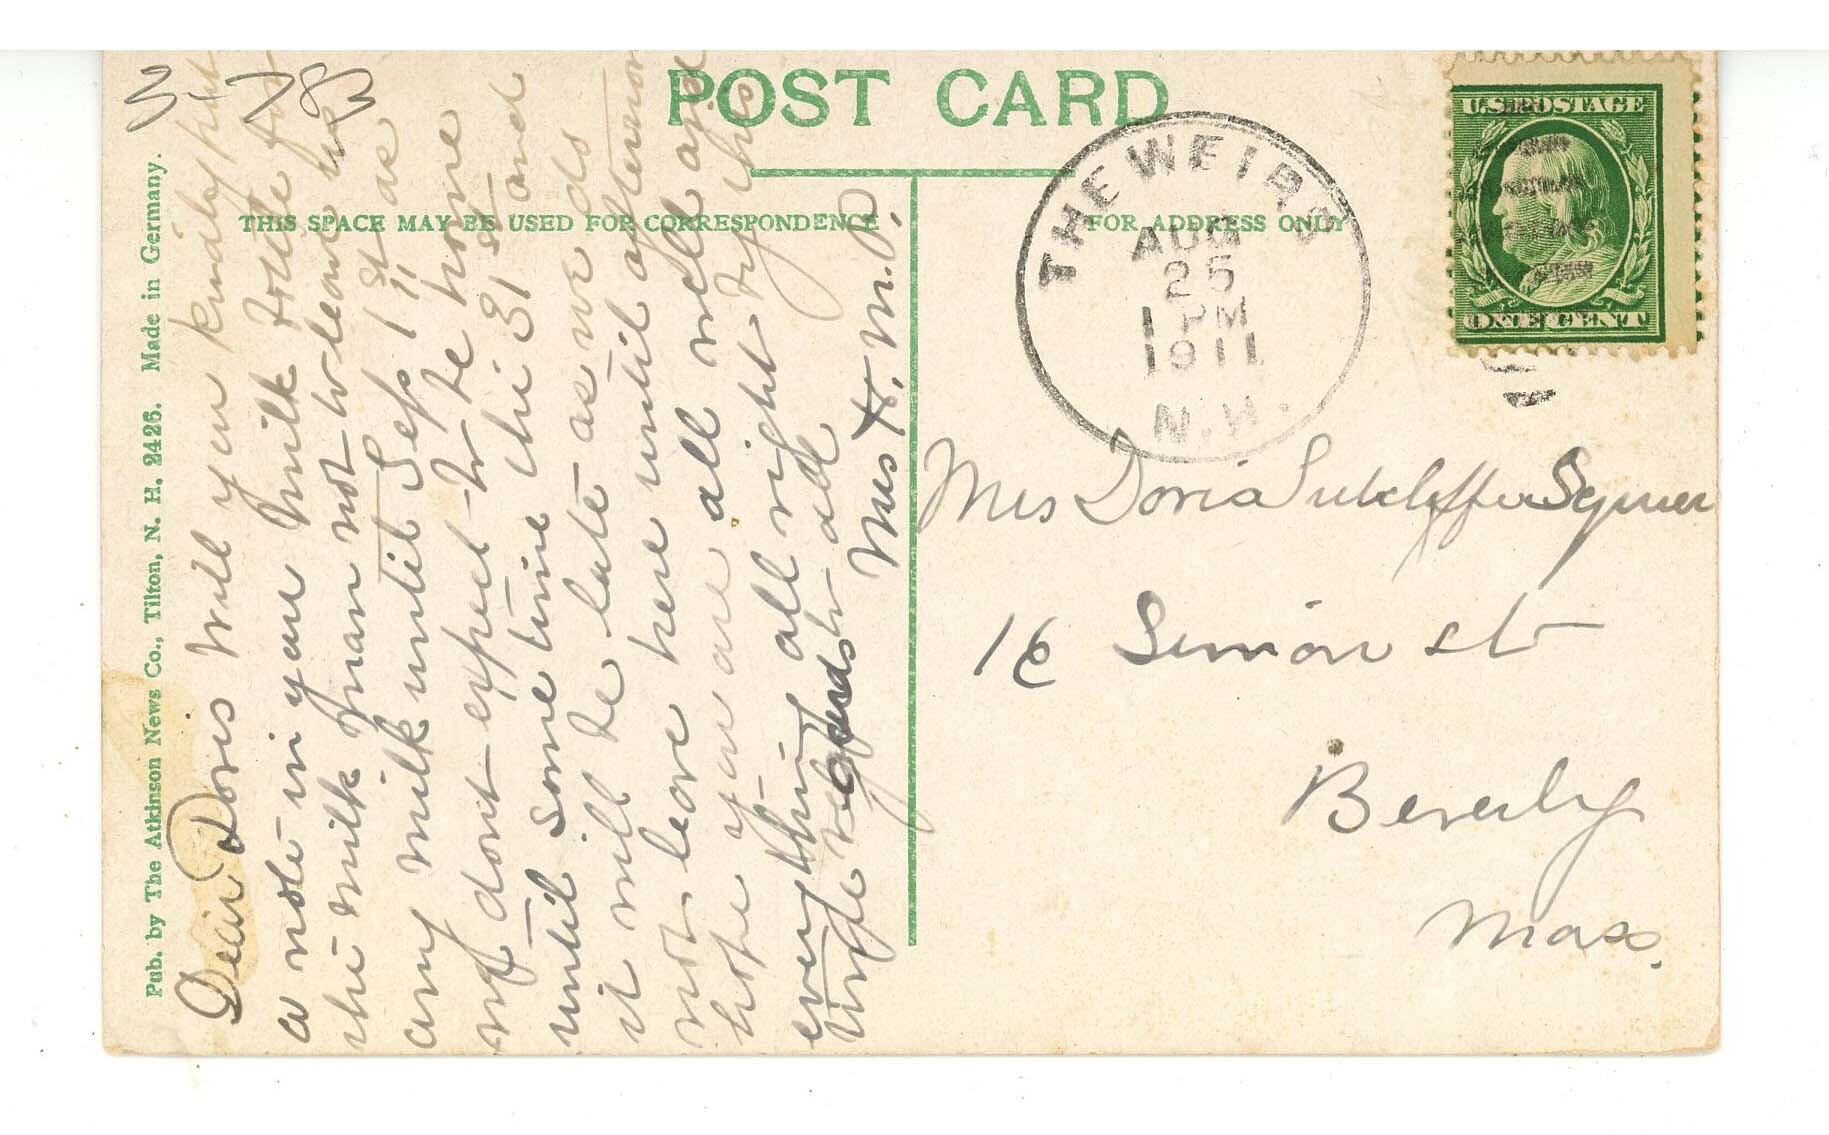 3-78
POST CARD
THIS SPACE MAY BE USED FOR CORRESPONDENCE
FOR ADDRESS ONLY
Pub. by The Atkinson News Co., Tilton, N. H. 2425. Made in Germany.
U.S. POSTAGE
ONE CENT
THE WEIRS
AUG
25
1 PM
1911
N.H.
Dear Doris Will you kindly put
a note in your milk for
the milk man not to leave us
any milk until Sept 1st as
dont expect to be home
until some time the 31st and
it will be late as we do
not leave here until afternoon
hope you are all well and
everything all right
regards to all
Mrs H. M. P.
Mrs Doris Sutcliffe Symes
16 Simon st
Beverly
Mass.